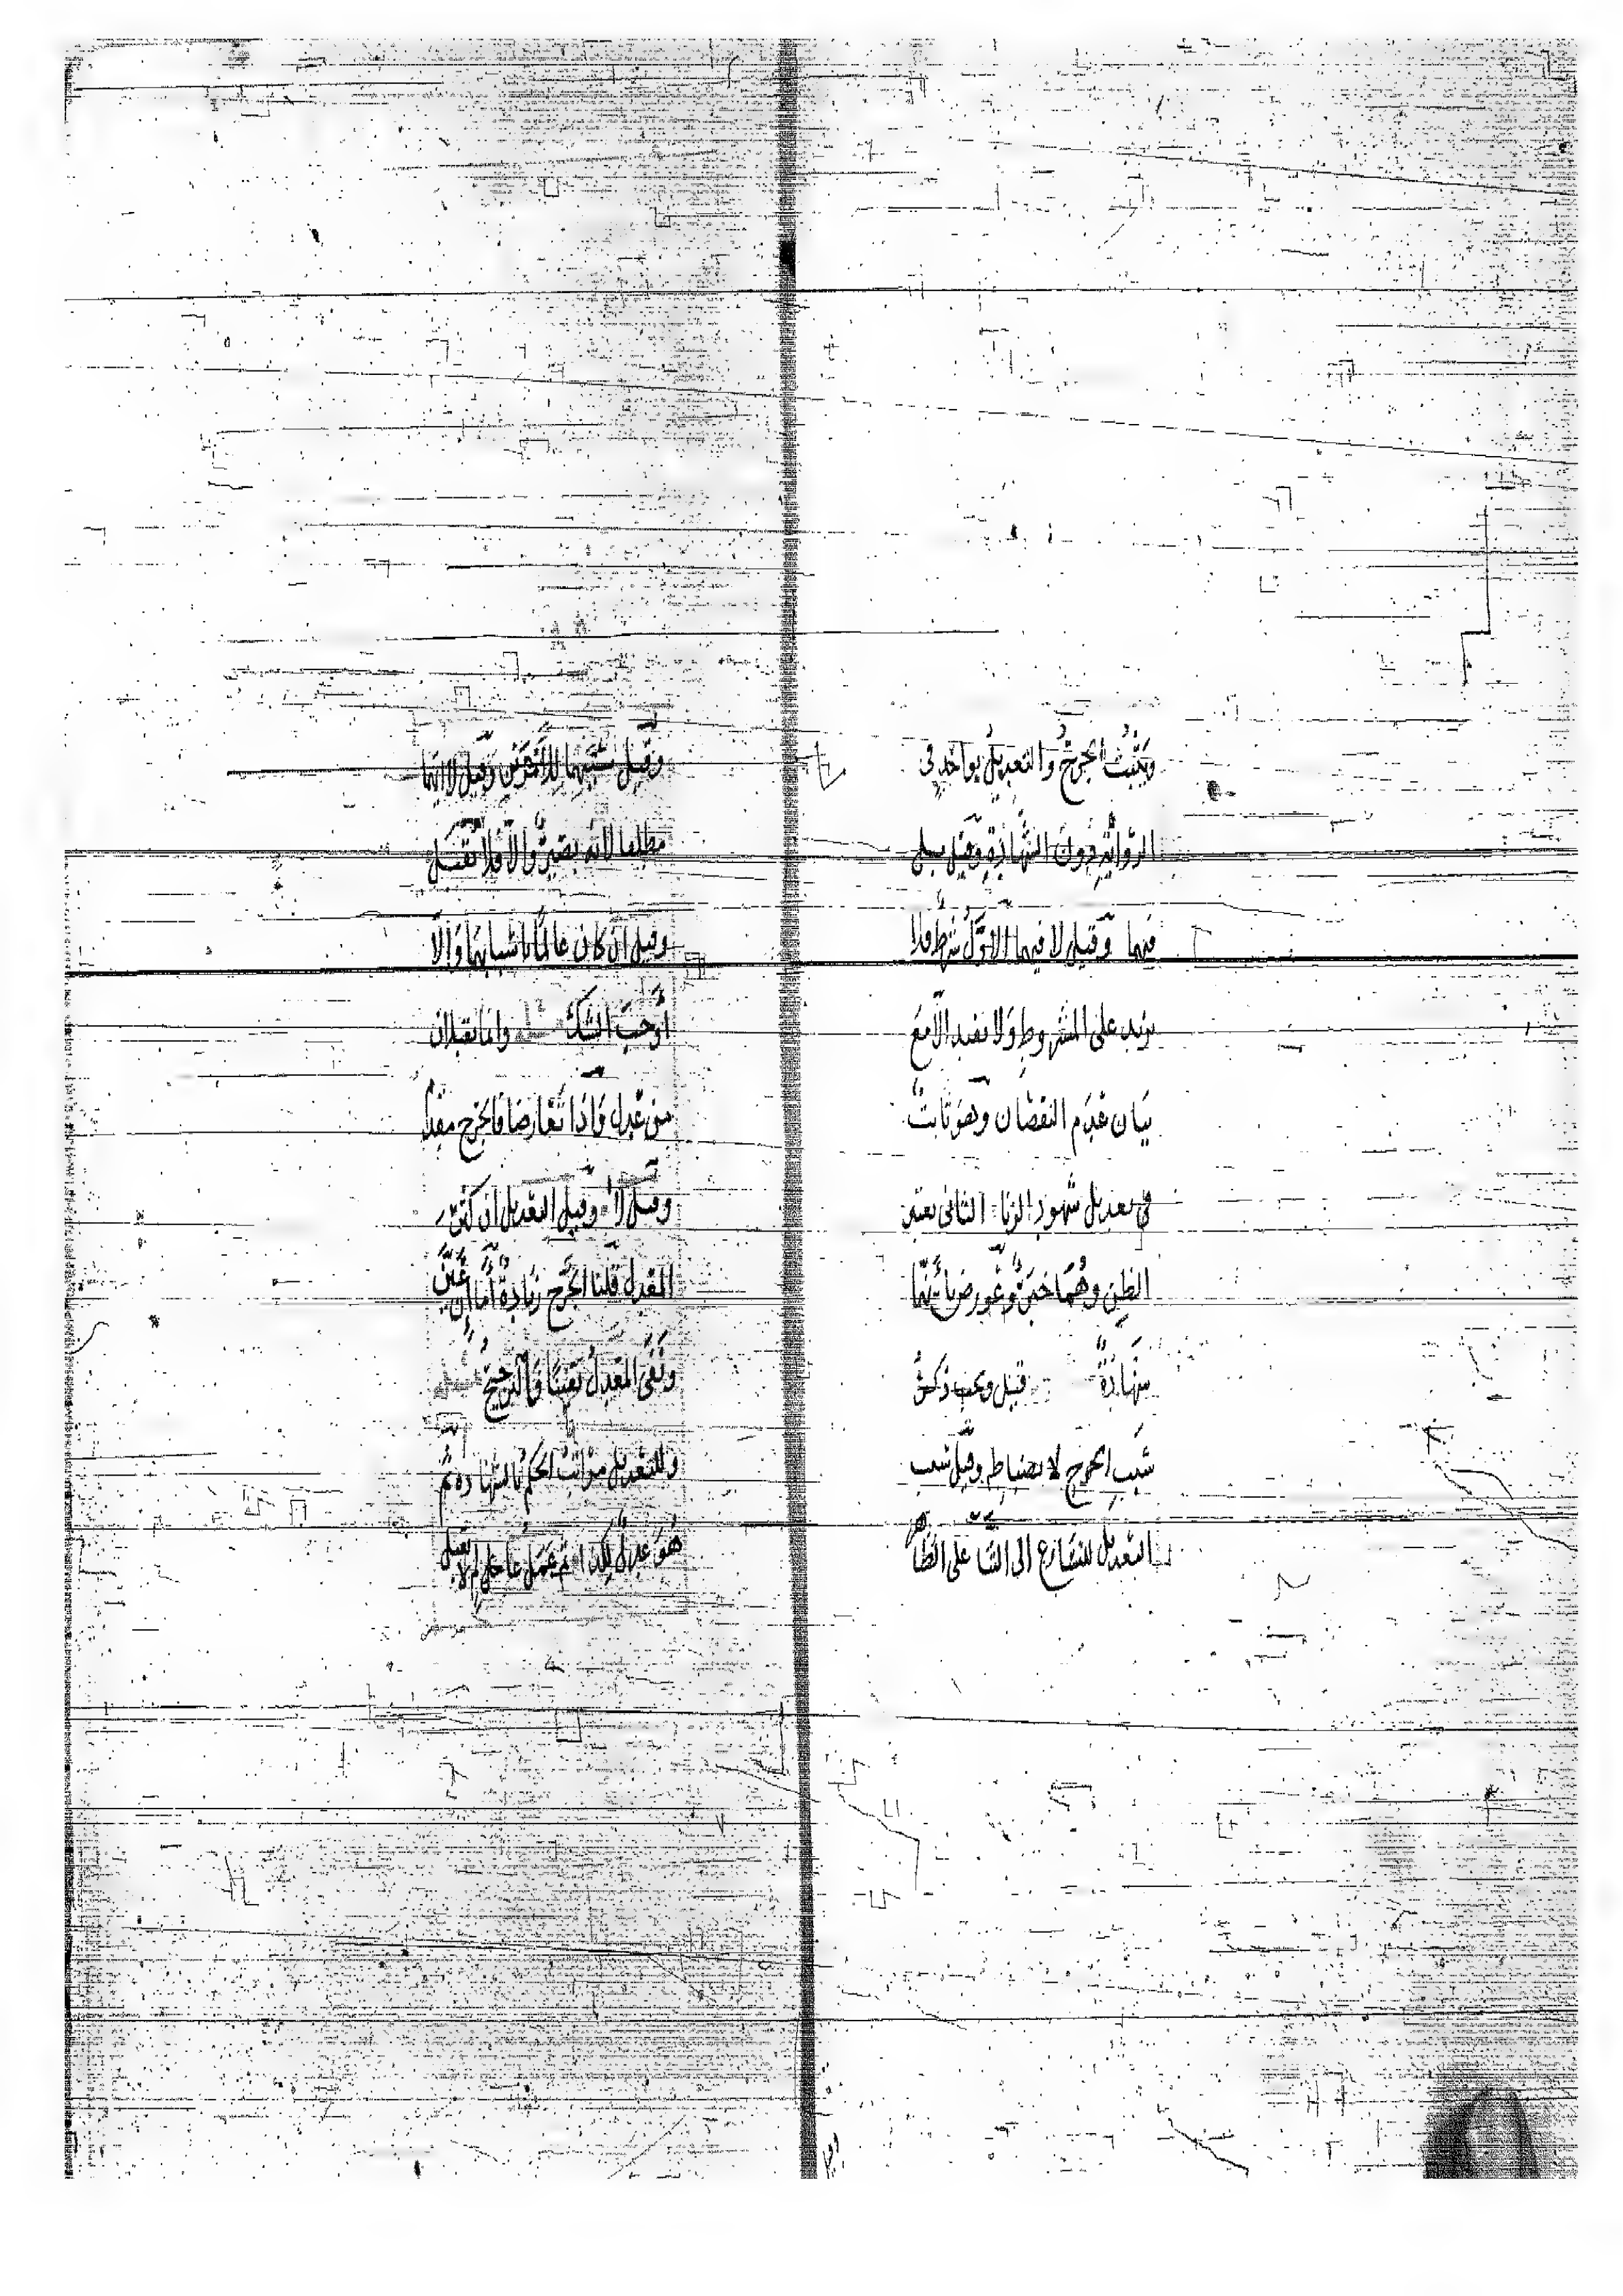 ويثبت الجرح والتعديل بواحد في
الرواية دون الشهادة وقيل بهما
فيهما وقيل لا فيهما الاول شرط فلا
يزيد على المشروط ولا نقبله الا مع
بيان عدم النقصان وهو ثابت
في تعديل شهود الزنا الثاني يعتبر
الظن وهما خبر وعورض بانهما
شهادة قيل ويجب ذكر
سبب الجرح لا بضباطه وقيل سبب
التعديل للتسارع الى الثنا على الظاهر
وقيل سببهما للامرين وقيل لا ايهما
مطلقا لانه بصير والا فلا تقبل
وقيل ان كان عالما باسبابهما والا
اوجب الشك وانما يقبلان
من عدل واذا تعارضا فالجرح مقدم
وقيل لا وقيل التعديل ان كثر
المعدل قلنا الجرح زيادة اما ان عين
ونفى المعدل يقينا فالترجيح
وللتعديل مراتب الحكم بالشهادة ثم
هو عدل لكذا ثم عمل عالم لا يقبل